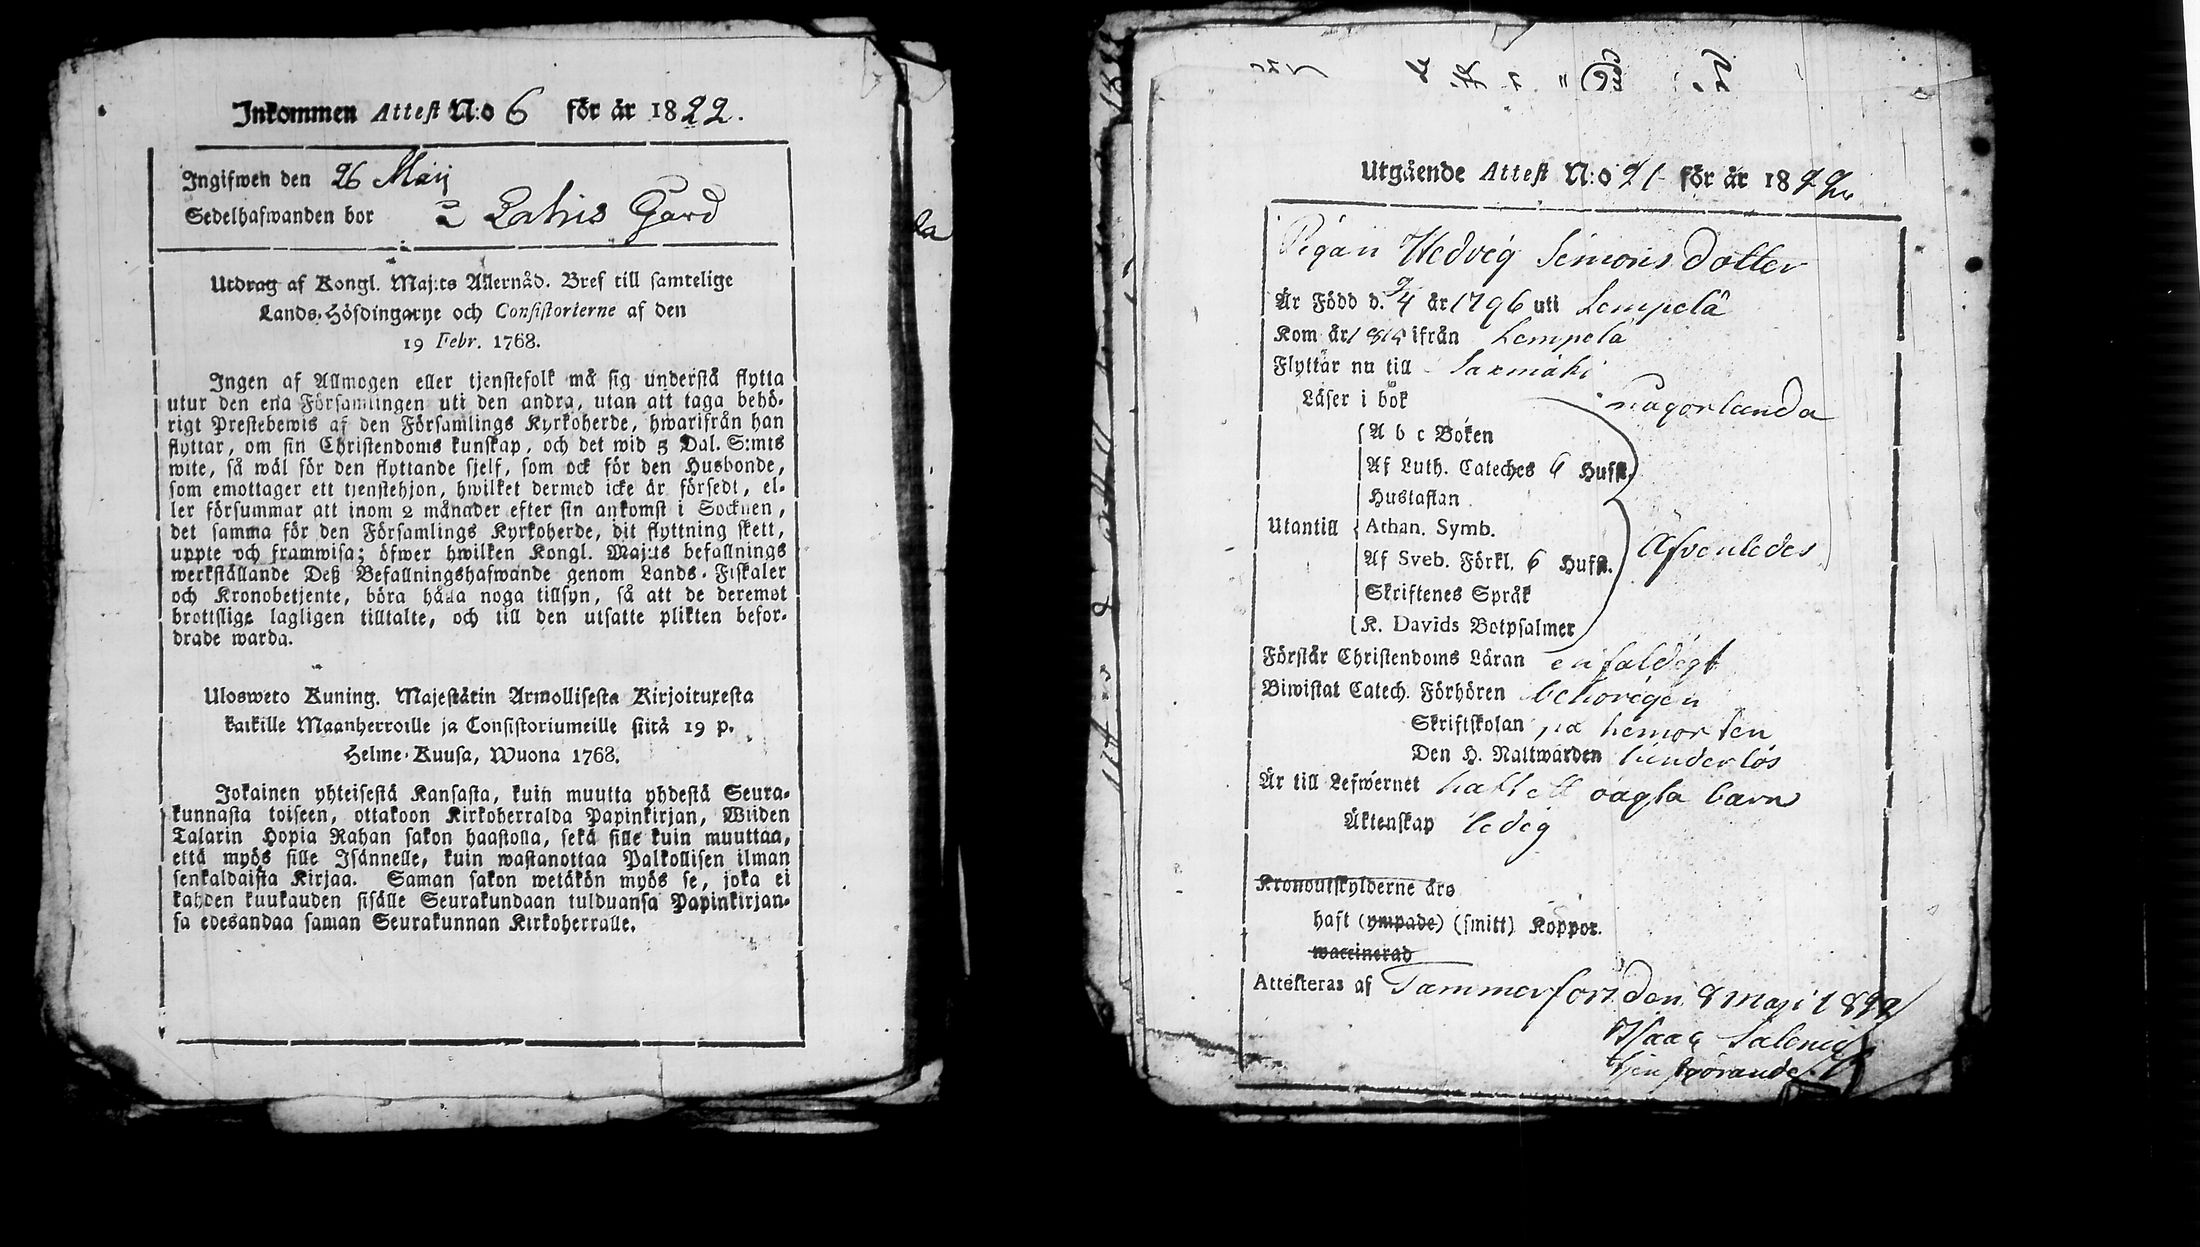 Inkommen Attest N:o 6 för år 1822.
Ingifwen den 26 Maij
Sedelhafwanden bor Gård
Utdrag af Kongl. Maj:ts Allernåd. Bref till samtelige
Lands-Höfdingarne och Consistorierne af den
19 Febr. 1768.
Ingen af Allmogen eller tjenstefolk må sig understå flytta
utur den ena Församlingen uti den andra, utan att taga behö-
rigt Prestebewis af den Församlings Kyrkoherde, hwarifrån han
flyttar, om sin Christendoms kunskap, och det wid 5 Dal. S:mts
wite, så wäl för den flyttande sjelf, som ock för den Husbonde,
som emottager ett tjenstehjon, hwilket dermed icke är försedt, el-
ler försummar att inom 2 månader efter sin ankomst i Socknen,
det samma för den Församlings Kyrkoherde, dit flyttning skett,
uppte och framwisa; öfwer hwilken Kongl. Maj:ts befallnings
werkställande Deß Befallningshafwande genom Lands-Fiskaler
och Kronobetjente, böra hålla noga tillsyn, så att de deremot
brottslige lagligen tilltalte, och till den utsatte plikten befor-
drade warda.
Ulosweto Kuning. Majestätin Armollisesta Kirjoituxesta
kaikille Maanherroille ja Consistoriumeille siitä 19 p.
Helme-Kuusa, Wuona 1768.
Jokainen yhteisestä Kansasta, kuin muutta yhdestä Seura-
kunnasta toiseen, ottakoon Kirkoherralda Papinkirjan, Wiiden
Talarin Hopia Rahan sakon haastolla, sekä sille kuin muuttaa,
että myös sille Isännelle, kuin wastanottaa Palkollisen ilman
senkaldaista Kirjaa. Saman sakon wetäkön myös se, joka ei
kahden kuukauden sisälle Seurakundaan tulduansa Papinkirjan-
sa edesandaa saman Seurakunnan Kirkoherralle.
Utgående Attest N:o 21 för år 1822
Pigan Hedvig Simons Dotter
Är Född d. 9/4 år 1796 uti Lempelä
Kom år ifrån Lempelä
Flyttar nu till Saxmäki
Läser i bok någorlunda
A b c Boken
Af Luth. Cateches 6 Hufst.
Hustaflan
Utantill Athan. Symb.
Af Sveb. Förkl. 6 Hufst. Äfvenledes
Skriftenes Språk
K. Davids Botpsalmer
Förstår Christendoms Läran enfaldigt
Biwistat Catech. Förhören behörigen
Skriftskolan på hemorten
Den H. Nattwarden hinderlös
Är till Lefwernet haft ett oägta barn
Äktenskap ledig
Kronoutskylderne äro
haft (ympade) (smitt) Koppor.
waccinerad
Attesteras af Tammerfors den 8 Maji 1822
Isaac Salenius
tjenstgörande